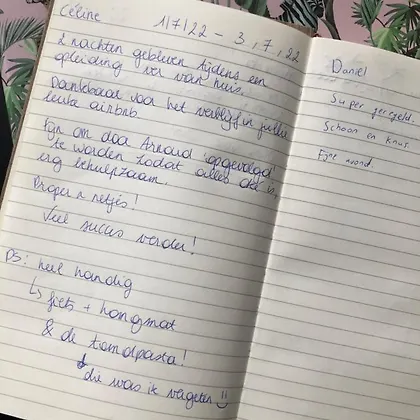 Céline 1/7/22 - 3,7,22
2 nachten gebleven tijdens een
opleiding ver van huis.
Dankbaar voor het verblijf in jullie
leuke airbnb.
Fijn om doa Arnoud 'opgevolgd'
te worden zodat alles oké is,
erg behulpzaam.
Proper n netjes!
Veel succes verder!
PS: heel handig
↳ fiets +
& de tandpasta!
↳ die was ik vergeten
Daniel
Super geregeld.
Schoon en knus.
Fijne avond.